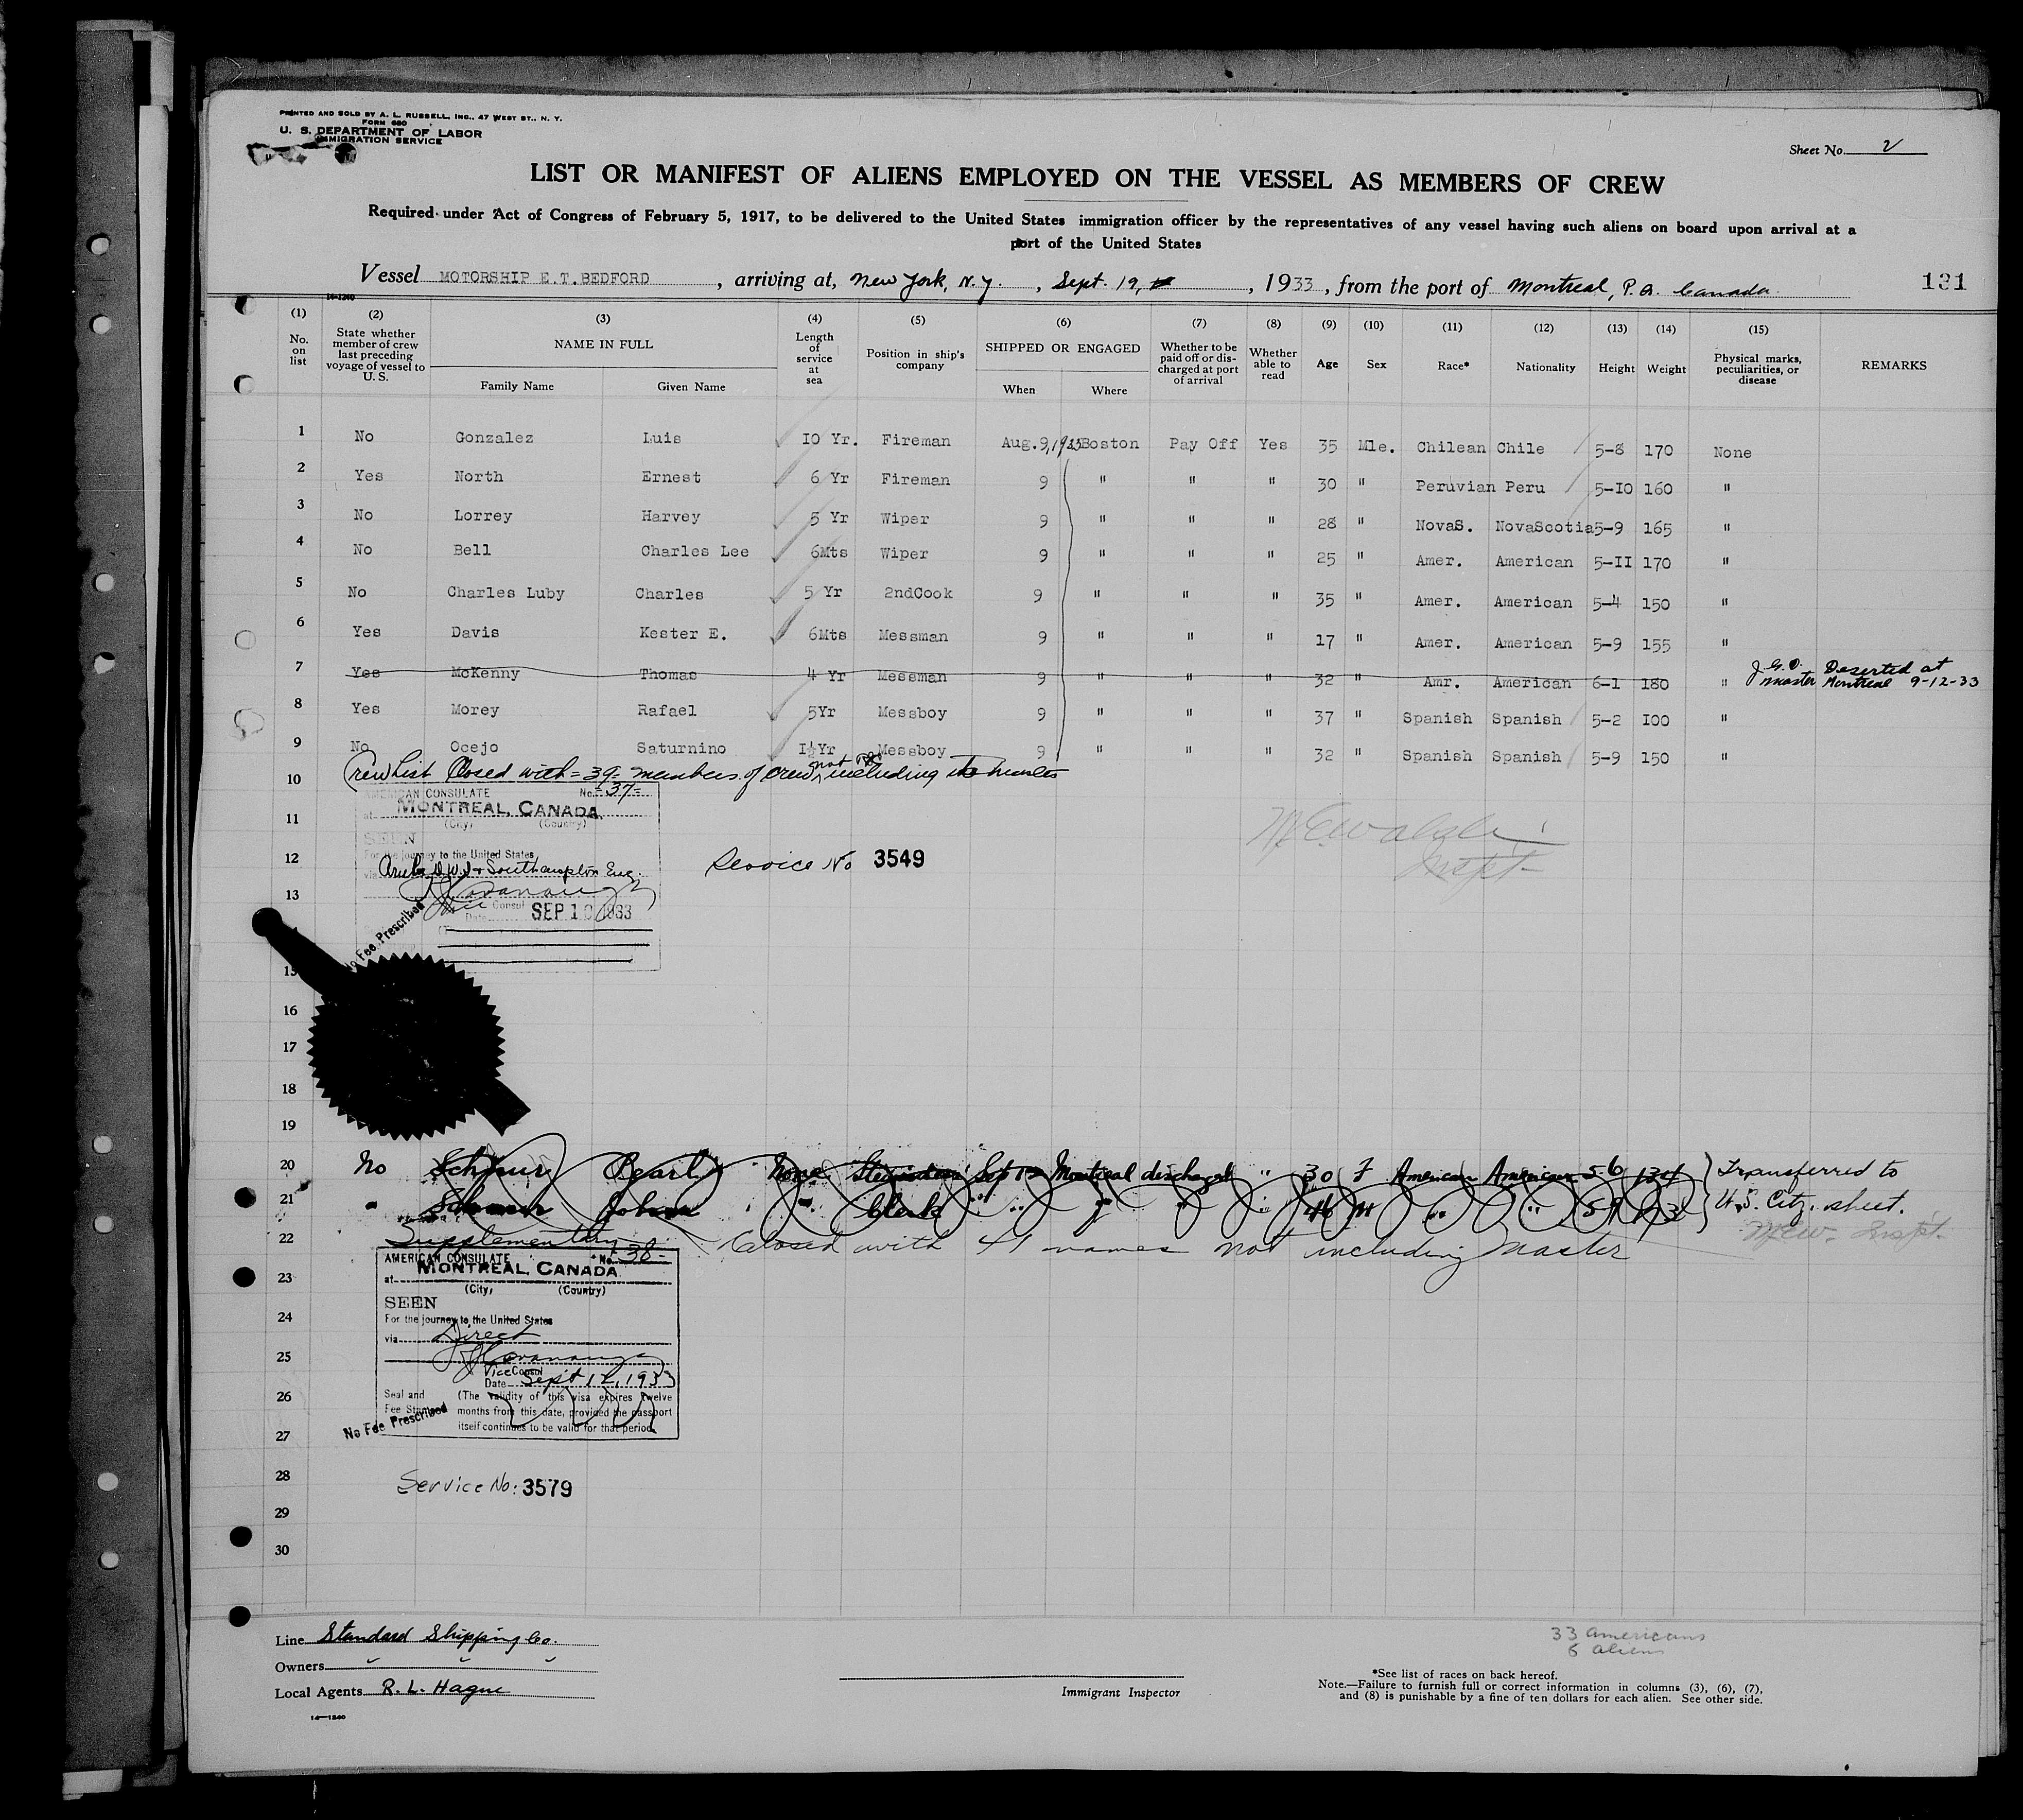 PRINTED AND SOLD BY A. L. RUSSELL, INC., 47 WEST ST., N. Y.
FORM 680
U. S. DEPARTMENT OF LABOR
IMMIGRATION SERVICE
Sheet No. 2
LIST OR MANIFEST OF ALIENS EMPLOYED ON THE VESSEL AS MEMBERS OF CREW
Required under Act of Congress of February 5, 1917, to be delivered to the United States immigration officer by the representatives of any vessel having such aliens on board upon arrival at a
port of the United States
Vessel MOTORSHIP E.T.BEDFORD, arriving at, New York, N.Y., Sept. 19, 1933, from the port of Montreal, P.Q. Canada 131
14-1240
(1) (2) (3) (4) (5) (6) (7) (8) (9) (10) (11) (12) (13) (14) (15)
No. on list State whether member of crew last preceding voyage of vessel to U. S. NAME IN FULL Length of service at sea Position in ship's company SHIPPED OR ENGAGED Whether to be paid off or discharged at port of arrival Whether able to read Age Sex Race* Nationality Height Weight Physical marks, peculiarities, or disease REMARKS
Family Name Given Name When Where
1 No Gonzalez Luis 10 Yr. Fireman Aug.9,1933 Boston Pay Off Yes 35 Mle. Chilean Chile 5-8 170 None
2 Yes North Ernest 6 Yr Fireman 9 " " " 30 " Peruvian Peru 5-10 160 "
3 No Lorrey Harvey 5 Yr Wiper 9 " " " 28 " NovaS. NovaScotia 5-9 165 "
4 No Bell Charles Lee 6Mts Wiper 9 " " " 25 " Amer. American 5-11 170 "
5 No Charles Luby Charles 5 Yr 2ndCook 9 " " " 35 " Amer. American 5-4 150 "
6 Yes Davis Kester E. 6Mts Messman 9 " " " 17 " Amer. American 5-9 155 "
7 Yes McKenny Thomas 4 Yr Messman 9 " " " 32 " Amr. American 6-1 180 " J.G.D. Master Deserted at Montreal 9-12-33
8 Yes Morey Rafael 5Yr Messboy 9 " " " 37 " Spanish Spanish 5-2 100 "
9 No Ocejo Saturnino 1½Yr Messboy 9 " " " 32 " Spanish Spanish 5-9 150 "
10 Crew List Closed with = 39 = members of crew, not including the master
AMERICAN CONSULATE No. =37=
11 at MONTREAL, CANADA.
(City) (Country)
SEEN
For the journey to the United States
12 via Aruba D.W.I. & Southampton Eng. Service No 3549
Inspt.
13 Vice Consul
Date SEP 10 1933
No Fee Prescribed
15
16
17
18
19
20 No Pearl None Sept 12 Montreal discharged " 30 F American American 5-6 134 Transferred to
21 " Clerk " " " " 46 M " " U.S. Citz. sheet.
22 Supplementary Closed with 41 names not including Master Inspt.
AMERICAN CONSULATE No. 38-
23 at MONTREAL, CANADA
(City) (Country)
SEEN
24 For the journey to the United States
via Direct
25 Vice Consul
Date Sept 12, 1933
26 Seal and Fee Stamps (The validity of this visa expires twelve
months from this date, provided the passport
27 itself continues to be valid for that period.
No Fee Prescribed
28 Service No: 3579
29
30
Line Standard Shipping Co.
Owners " " "
Local Agents R. L. Hague
14—1240
Immigrant Inspector
33 Americans
6 aliens
*See list of races on back hereof.
Note.—Failure to furnish full or correct information in columns (3), (6), (7),
and (8) is punishable by a fine of ten dollars for each alien. See other side.